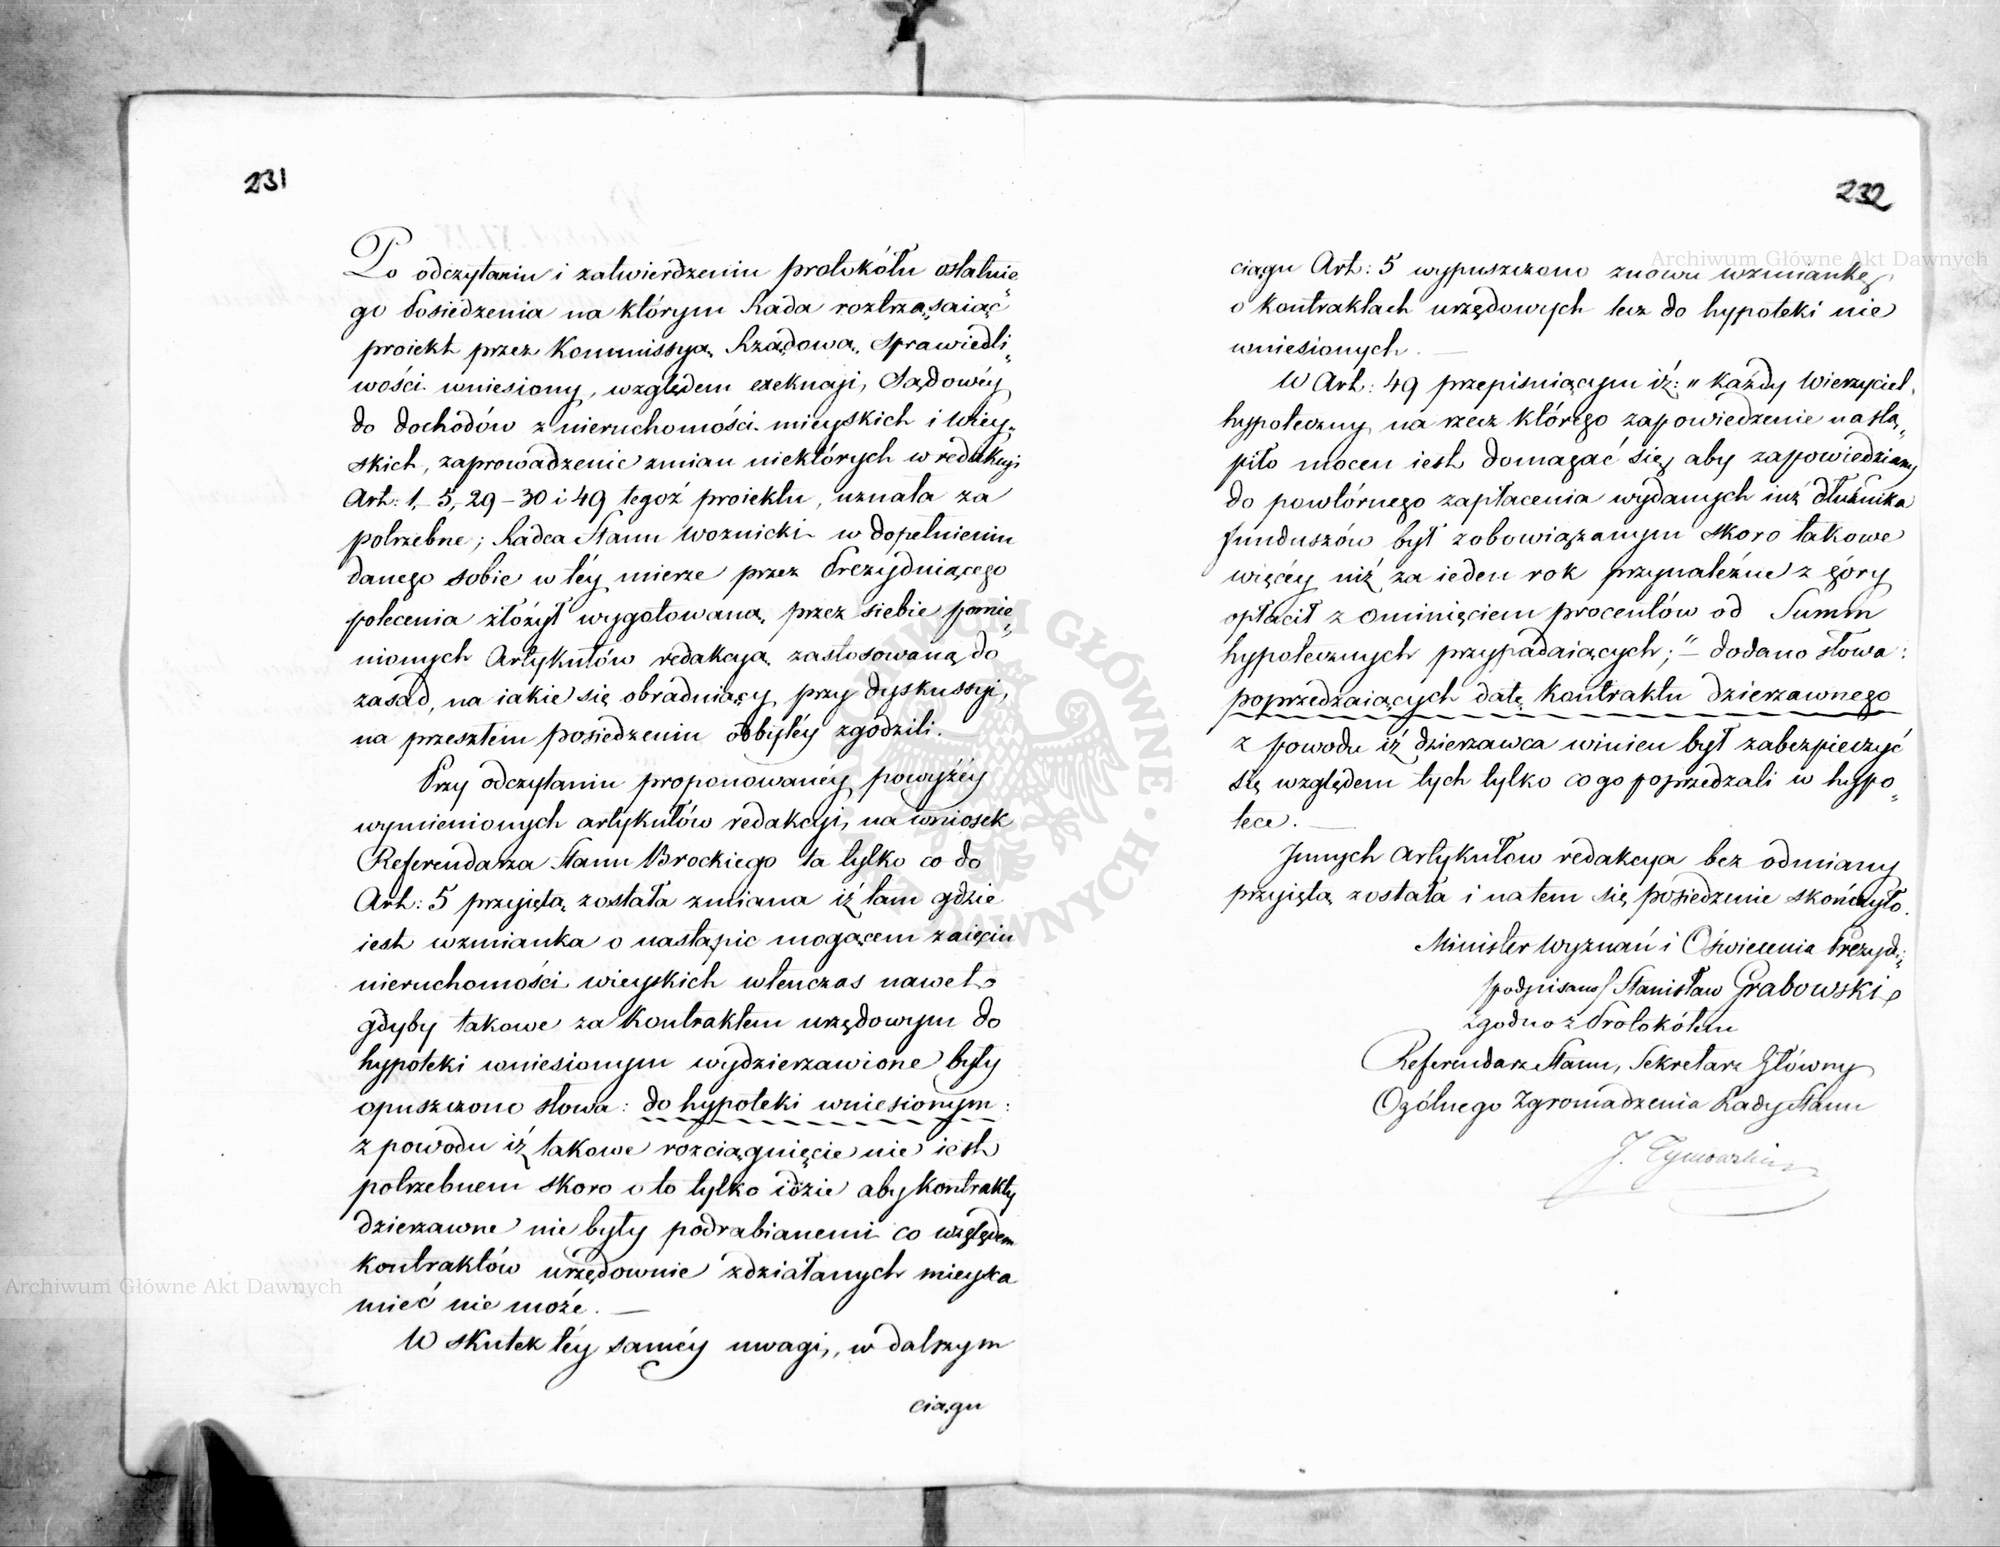 231
Po odczytaniu i zatwierdzeniu protokółu ostatnie„
go Posiedzenia na którym Rada roztrząsaiąc
proiekt przez Kommissyą Rządową Sprawiedli„
wości wniesiony, względem exekucyi Sądowéy
do dochodów z nieruchomości mieyskich i wiey„
skich, zaprowadzenie zmian niektórych w redakcyi
Art: 1, 5, 29–30 i 49 tegoż proiektu, uznała za
potrzebne; Radca Stanu Woznicki w dopełnieniu
danego sobie w téy mierze przez Prezyduiącego
polecenia złożył wygotowaną przez siebie pomie„
nionych Artykułów redakcyą zastosowaną do
zasad, na iakie się obraduiący przy dyskussyi,
na przeszłem posiedzeniu odbytéy zgodzili.
Przy odczytaniu proponowanéy powyżéy
wymienionych artykułów redakcyi, na wniosek
Referendarza Stanu Brockiego ta tylko co do
Art: 5 przyiętą została zmiana iż tam gdzie
iest wzmianka o nastąpic mogącem zaięciu
nieruchomości wieyskich wtenczas nawet
gdyby takowe za Kontraktem urzędowym do
hypoteki wniesionym wydzierzawione były
opuszczono słowa: do hypoteki wniesionym:
z powodu iż takowe rozciągnięcie nie iest
potrzebnem skoro o to tylko idzie aby kontrakty
dzierzawne nie były podrabianemi co względem
kontraktów urzędownie zdziałanych mieysca
mieć nie może. —
W skutek téy saméy uwagi, w dalszym
ciągu
232
ciągu Art: 5 wypuszczono znowu wzmiankę
o kontraktach urzędowych lecz do hypoteki nie
wniesionych. —
W Art: 49 przepisuiącym iż: „ każdy Wierzyciel
hypoteczny na rzecz którego zapowiedzenie nastą„
piło mocen iest domagać się aby zapowiedziany
do powtórnego zapłacenia wydanych iuż dłużnika
funduszów był zobowiązanym skoro takowe
więcéy niż za ieden rok przynależne z góry
opłacił z ominięciem procentów od Summ
hypotecznych przypadaiących;“ – dodano słowa:
poprzedzaiących datę Kontraktu dzierzawnego
z powodu iż dzierzawca winien był zabezpieczyć
się względem tych tylko co go poprzedzali w hypo„
tece. —
Innych Artykułow redakcya bez odmiany
przyiętą została i na tem się posiedzenie skończyło.
Minister Wyznań i Oświecenia Prezyd:
/podpisano/ Stanisław Grabowski
zgodno z Protokółem
Referendarz Stanu, Sekretarz Główny
Ogólnego Zgromadzenia Rady Stanu
J. Tymowski
Archiwum Główne Akt Dawnych
Archiwum Główne Akt Dawnych
ARCHIWUM GŁÓWNE AKT DAWNYCH